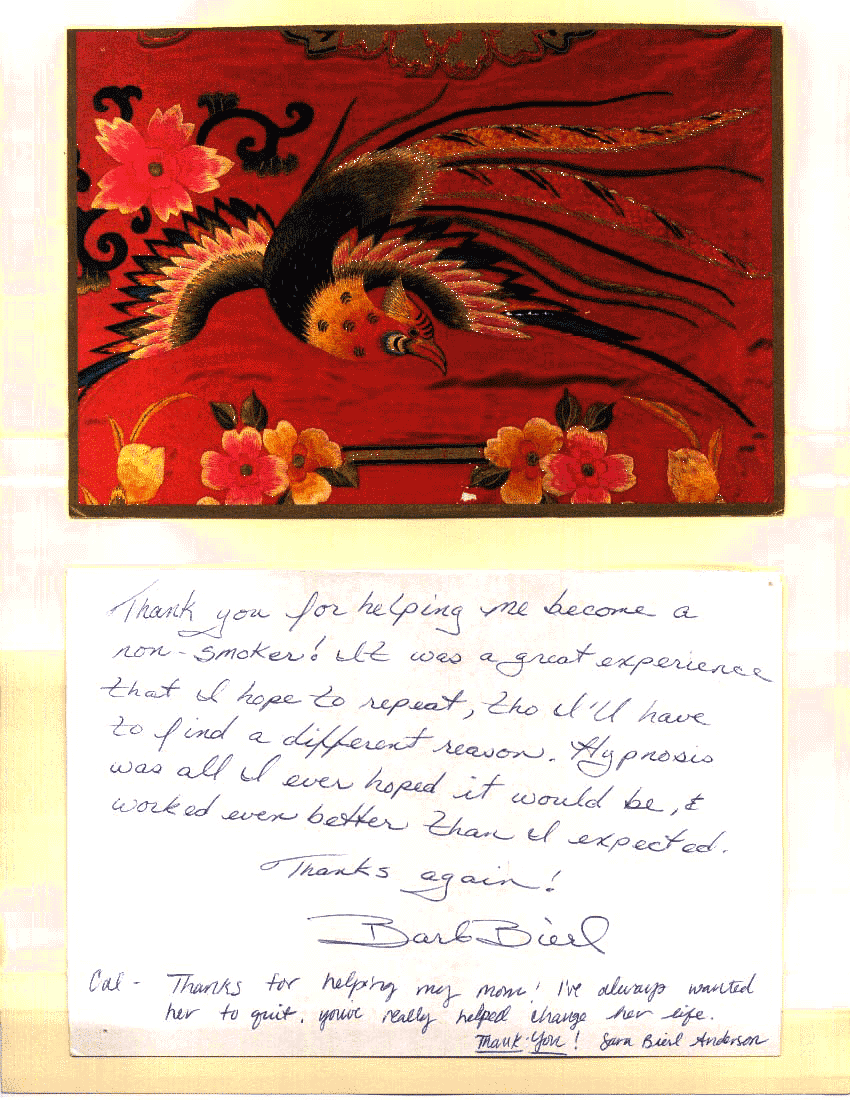 Thank you for helping me become a
non-smoker! It was a great experience
that I hope to repeat, tho I'll have
to find a different reason. Hypnosis
was all I ever hoped it would be, &
worked even better than I expected.
Thanks again!
Barb Bierl
Cal - Thanks for helping my mom! I've always wanted
her to quit. you've really helped change her life.
Thank-You! Sara Bierl Anderson